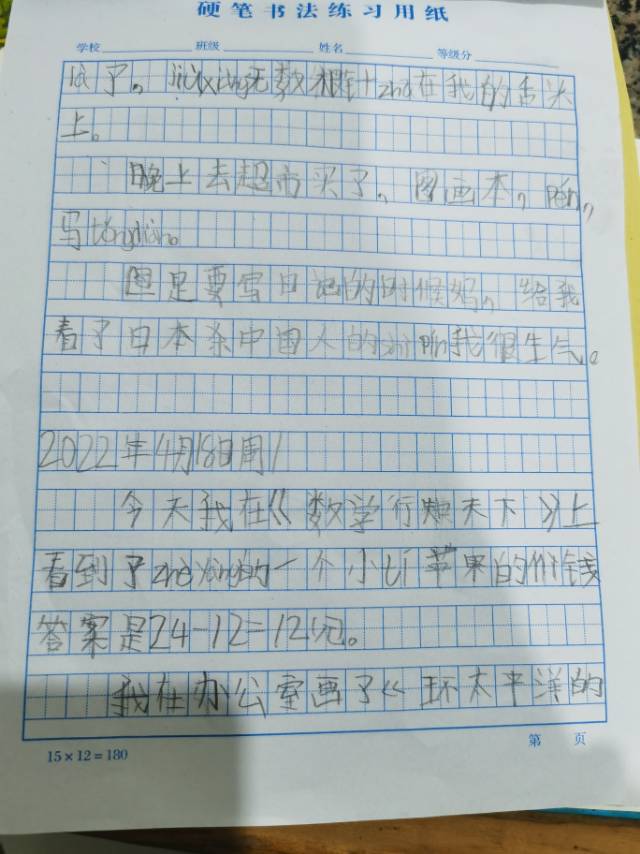 硬笔书法练习用纸
学校 班级 姓名 等级分
了。 无数 在我的舌头
上。
晚上去超市买了，图画本，
写
是要写日记的时候妈，给我
看了日本杀中国人的 我很生气。
2022年4月18日周1
今天我在《数学行 天下》上
看到了zhe yang的一个小ti苹果的 钱
答案是24-12=12元。
我在办公室画了《环太平洋的
15×12=180
第 页